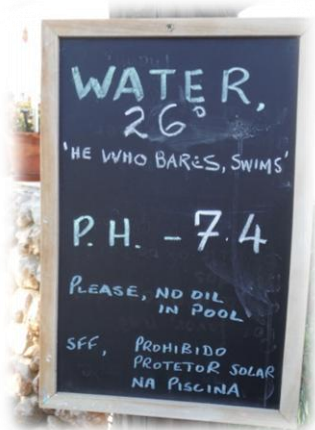 WATER,
26°
'HE WHO BARES, SWIMS'
P.H. - 7.4
PLEASE, NO OIL
IN POOL
SFF, PROHIBIDO
PROTETOR SOLAR
NA PISCINA